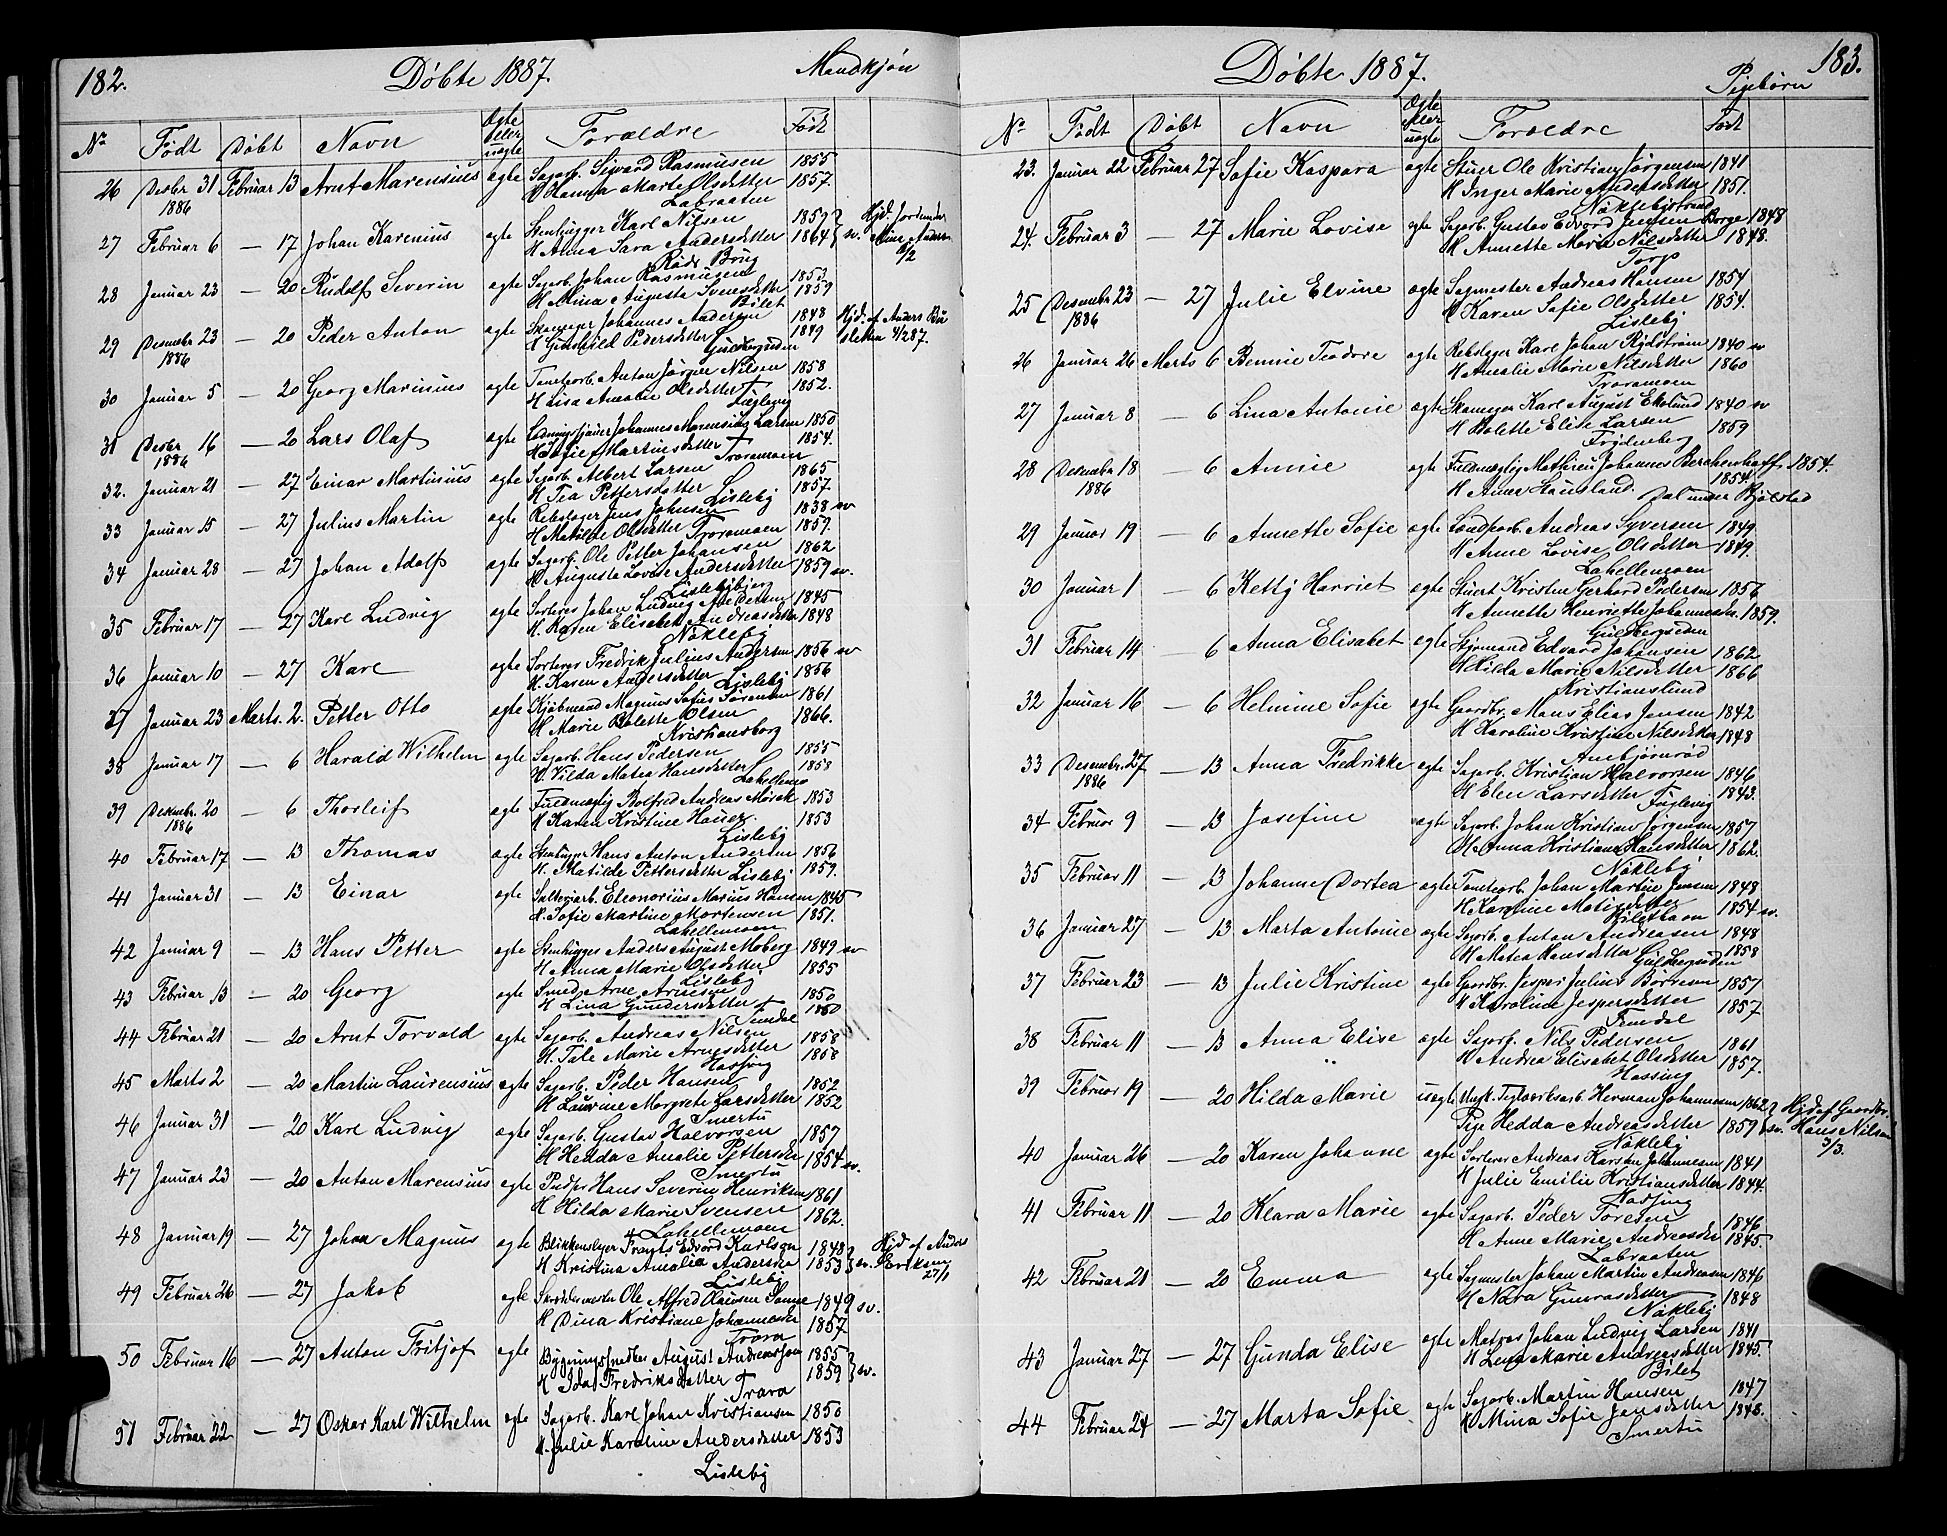 182. Døbte 1887. Mandkjøn
No Født Døbt Navn Ægte eller uægte Forældre Født
26 Desbr 31 1886 Februar 13 Arnt Marensius ægte Sagarb. Sigvard Rasmusen 1855
H Hanna Marte Olsdatter 1857.
Labraaten
27 Februar 6 — 17 Johan Karenius ægte Stenhugger Karl Nilsen 1859 } sv. Hjd. Jordmoder
H Anna Sara Andersdatter 1864
Røds Brug
28 Januar 23 — 20 Rudolf Severin ægte Sagarb. Johan Rasmusen 1853
H Mina Augusta Svensdatter 1859
Bilet
29 Desember 23 1886 — 20 Peder Anton ægte Skomager Johannes Andersen 1848 Hjd. af Anders
H Gunhild Pedersdatter 1849 4/2 87.
Guldbergsiden
30 Januar 5 — 20 Georg Marinius ægte Tomtearb. Anton Jørger Nilsen 1858
H Lisa Amalie Olsdatter 1852.
Fuglevig
31 Desbr 16 1886 — 20 Lars Olaf ægte Johannes Marensius Larsen 1850
H Sofie Martinsdatter 1854.
Traramoen
32. Januar 21 — 27 Einar Martinius ægte Sagarb. Albert Larsen 1865
H Tea Pettersdatter 1857.
Lisleby
33 Januar 15 — 27 Julius Martin ægte Rebslager Jens Johnsen 1838 sv
H Matilde Olsdatter 1857.
Traramoen
34 Januar 28 — 27 Johan Adolf ægte Sagarb. Ole Petter Johansen 1862
H Augusta Lovise Andersdatter 1859 sv.
Lislebybjerg
35 Februar 17 — 27 Karl Ludvig ægte Sorterer Johan Ludvig 1845
H. Karen Elisabet Andreasdatter 1848
Nøkleby
36 Januar 10 — 27 Karl ægte Sorterer Fredrik Julius Andersen 1856 sv
H. Karen Andersdatter 1856
Lisleby
37 Januar 23 Marts. 2. Petter Otto ægte Kjøbmand Magnus Sofus Sørensen 1861
H Marie Bolette Olsen 1866.
Kristiansborg
38 Januar 17 — 6 Harald Wilhelm ægte Sagarb. Hans Pedersen 1855
H. Vilda Matea Hansdatter 1858
Lahellemoen
39 Desember 20 1886 — 6 Thorleif ægte Fuldmægtig Bolfred Andreas Mørck 1853
H Karen Kristine Hansen. 1853
Lisleby
40 Februar 17 — 13 Thomas ægte Stenhugger Hans Anton Andersen 1856
H. Matilde Pettersdatter 1859.
Lisleby
41 Januar 31 — 13 Einar ægte Eleonorius Marius Hansen 1845
H. Sofie Martine Mortensen 1851.
Lahellemoen
42 Januar 9 — 13 Hans Petter ægte Stenhugger Anders August Moberg 1849 sv
H Anna Marie Olsdatter 1855
Lisleby
43 Februar 13 — 20 Georg ægte Smed Arne Arnesen 1850
H Lina Gundersdatter 1860
Tendal
44 Februar 21 — 20 Arnt Torvald ægte Sagarb. Andreas Nilsen 1858
H. Tale Marie Arnesdatter 1858
Hassing
45 Marts 2 — 20 Martin Laurensius ægte Sagarb. Peder Hansen 1852
H Laurine Margrete Larsdatter 1852
Smertu
46 Januar 31 — 20 Karl Ludvig ægte Sagarb. Gustav Halvorsen 1857
H Hedda Amalie Pettersdtr 1854 sv.
Smertu
47 Januar 23 — 20 Anton Marensius ægte Hans Severin Henriksen 1861
H Hilda Marie Svensen 1862.
Lahellemoen
48 Januar 19 — 27 Johan Magnus ægte Blikkenslager Frants Edvard Karlsen 1848 } sv. Hjd af Anders
H Kristina Amalia Andersdtr 1853 Eriksen 27/1
Lisleby
49 Februar 26 — 27 Jakob ægte Skræddermester Ole Alfred Clausen Sanne 1849 sv.
H Dina Kristiane Johannesdtr 1857
Trara
50 Februar 16 — 27 Anton Fritjof ægte Bygningssnedker August Andreassen 1855 } sv.
H Ida Fredriksdatter 1859
Trara
51 Februar 22 — 27 Oskar Karl Wilhelm ægte Sagarb. Karl Johan Kristiansen 1850
H. Julie Karoline Andersdatter 1853
Lisleby
Døbte 1887. Pigebørn 183.
No Født Døbt Navn Ægte eller uægte Forældre Født
23. Januar 22 Februar 27 Sofie Kaspara ægte Stuer Ole Kristian Jørgensen 1841
H Inger Marie Andersdatter 1851.
Nøklebystrand
24. Februar 3 — 27 Marie Lovise ægte Sagarb. Gustav Edvard Jensen Borge 1848
H Annette Marie Nilsdatter 1848.
Torp
25 Desember 23 1886 — 27 Julie Elvine ægte Sagmester Andreas Hansen 1854
H Karen Sofie Olsdatter 1854.
Lisleby
26 Januar 26 Marts 6 Bennie Teodore ægte Rebslager Karl Johan Rydstrøm 1840 sv
H Amalie Marie Nilsdatter 1860
Traramoen
27 Januar 8 — 6 Lina Antonie ægte Skomager Karl August Ekelund 1840 sv
H Bolette Elise Larsen 1859
Frydenberg
28 Desember 18 1886 — 6 Annie ægte Fuldmægtig Mathieu Johannes Berchenhoff 1854.
H Anna Hausland. 1854.
Dal under Bjølstad
29 Januar 19 — 6 Annette Sofie ægte Andreas Syversen 1849
H Anne Lovise Olsdatter 1849.
Lahellemoen
30 Januar 1 — 6 Ketty Harriet ægte Stuert Kristen Gerhard Pedersen 1856
H Annette Henriette Johannesdtr. 1859.
Guldbergsiden
31 Februar 14 — 6 Anna Elisabet ægte Styrmand Edvard Johansen 1862
H Hilda Marie Nilsdatter 1866
Kristianslund
32 Januar 16 — 6 Helmine Sofie ægte Gaardbr. Mons Elias Jensen 1842
H Karoline Kristine Nilsdatter 1848
Ambjørnrød
33 Desember 27 1886 — 13 Anna Fredrikke ægte Sagarb. Kristian Halvorsen 1846
H Elen Larsdatter 1843.
Fuglevig
34 Februar 9 — 13 Josefine ægte Sagarb. Johan Kristian Jørgensen 1857
H Anna Kristiane Hansdatter 1862.
Nøkleby
35 Februar 11 — 13 Johanne Dortea ægte Tomtearb. Johan Martin Jensen 1848
H Karoline 1854 sv.
36 Januar 27 — 13 Marta Antonie ægte Sagarb. Anton Andreasen 1848
H Matea Hansdatter 1858
Guldbergsiden
37 Februar 23 — 13 Julie Kristine ægte Gaardbr. Jesper Julius Børresen 1857
H Karoline Jespersdatter 1857.
Tendal
38 Februar 11 — 13 Anna Elise ægte Sagarb. Nils Pedersen 1861
H Andrea Elisabet Olsdatter 1857.
Hassing
39 Februar 19 — 20 Hilda Marie uægte Ungk. Teglværksarb. Herman Johannesen 1862 } sv. Hjd af Gaardbr.
Pige Hedda Andreasdatter 1859 Hans Nilsen 3/3.
Nøkleby
40 Januar 26 — 20 Karen Johanne ægte Sorterer Andreas Karsten Johannesen 1841
H Julie Emilie Kristiansdatter 1844.
Hassing
41 Februar 11 — 20 Klara Marie ægte Sagarb. Peder Toresen 1846
H Anne Marie Andreasdtr 1845.
Labraaten
42 Februar 21 — 20 Emma ægte Sagmester Johan Martin Andreasen 1846
H Nora Gunnarsdatter 1848
Nøkleby
43 Januar 27 — 27 Gunda Elise ægte Matros Johan Ludvig Larsen 1841
H Lena Marie Andreasdatter 1845.
Bilet
44 Februar 24 — 27 Marta Sofie ægte Sagarb. Martin Hansen 1847
H Mina Sofie Jensdatter 1848.
Smertu